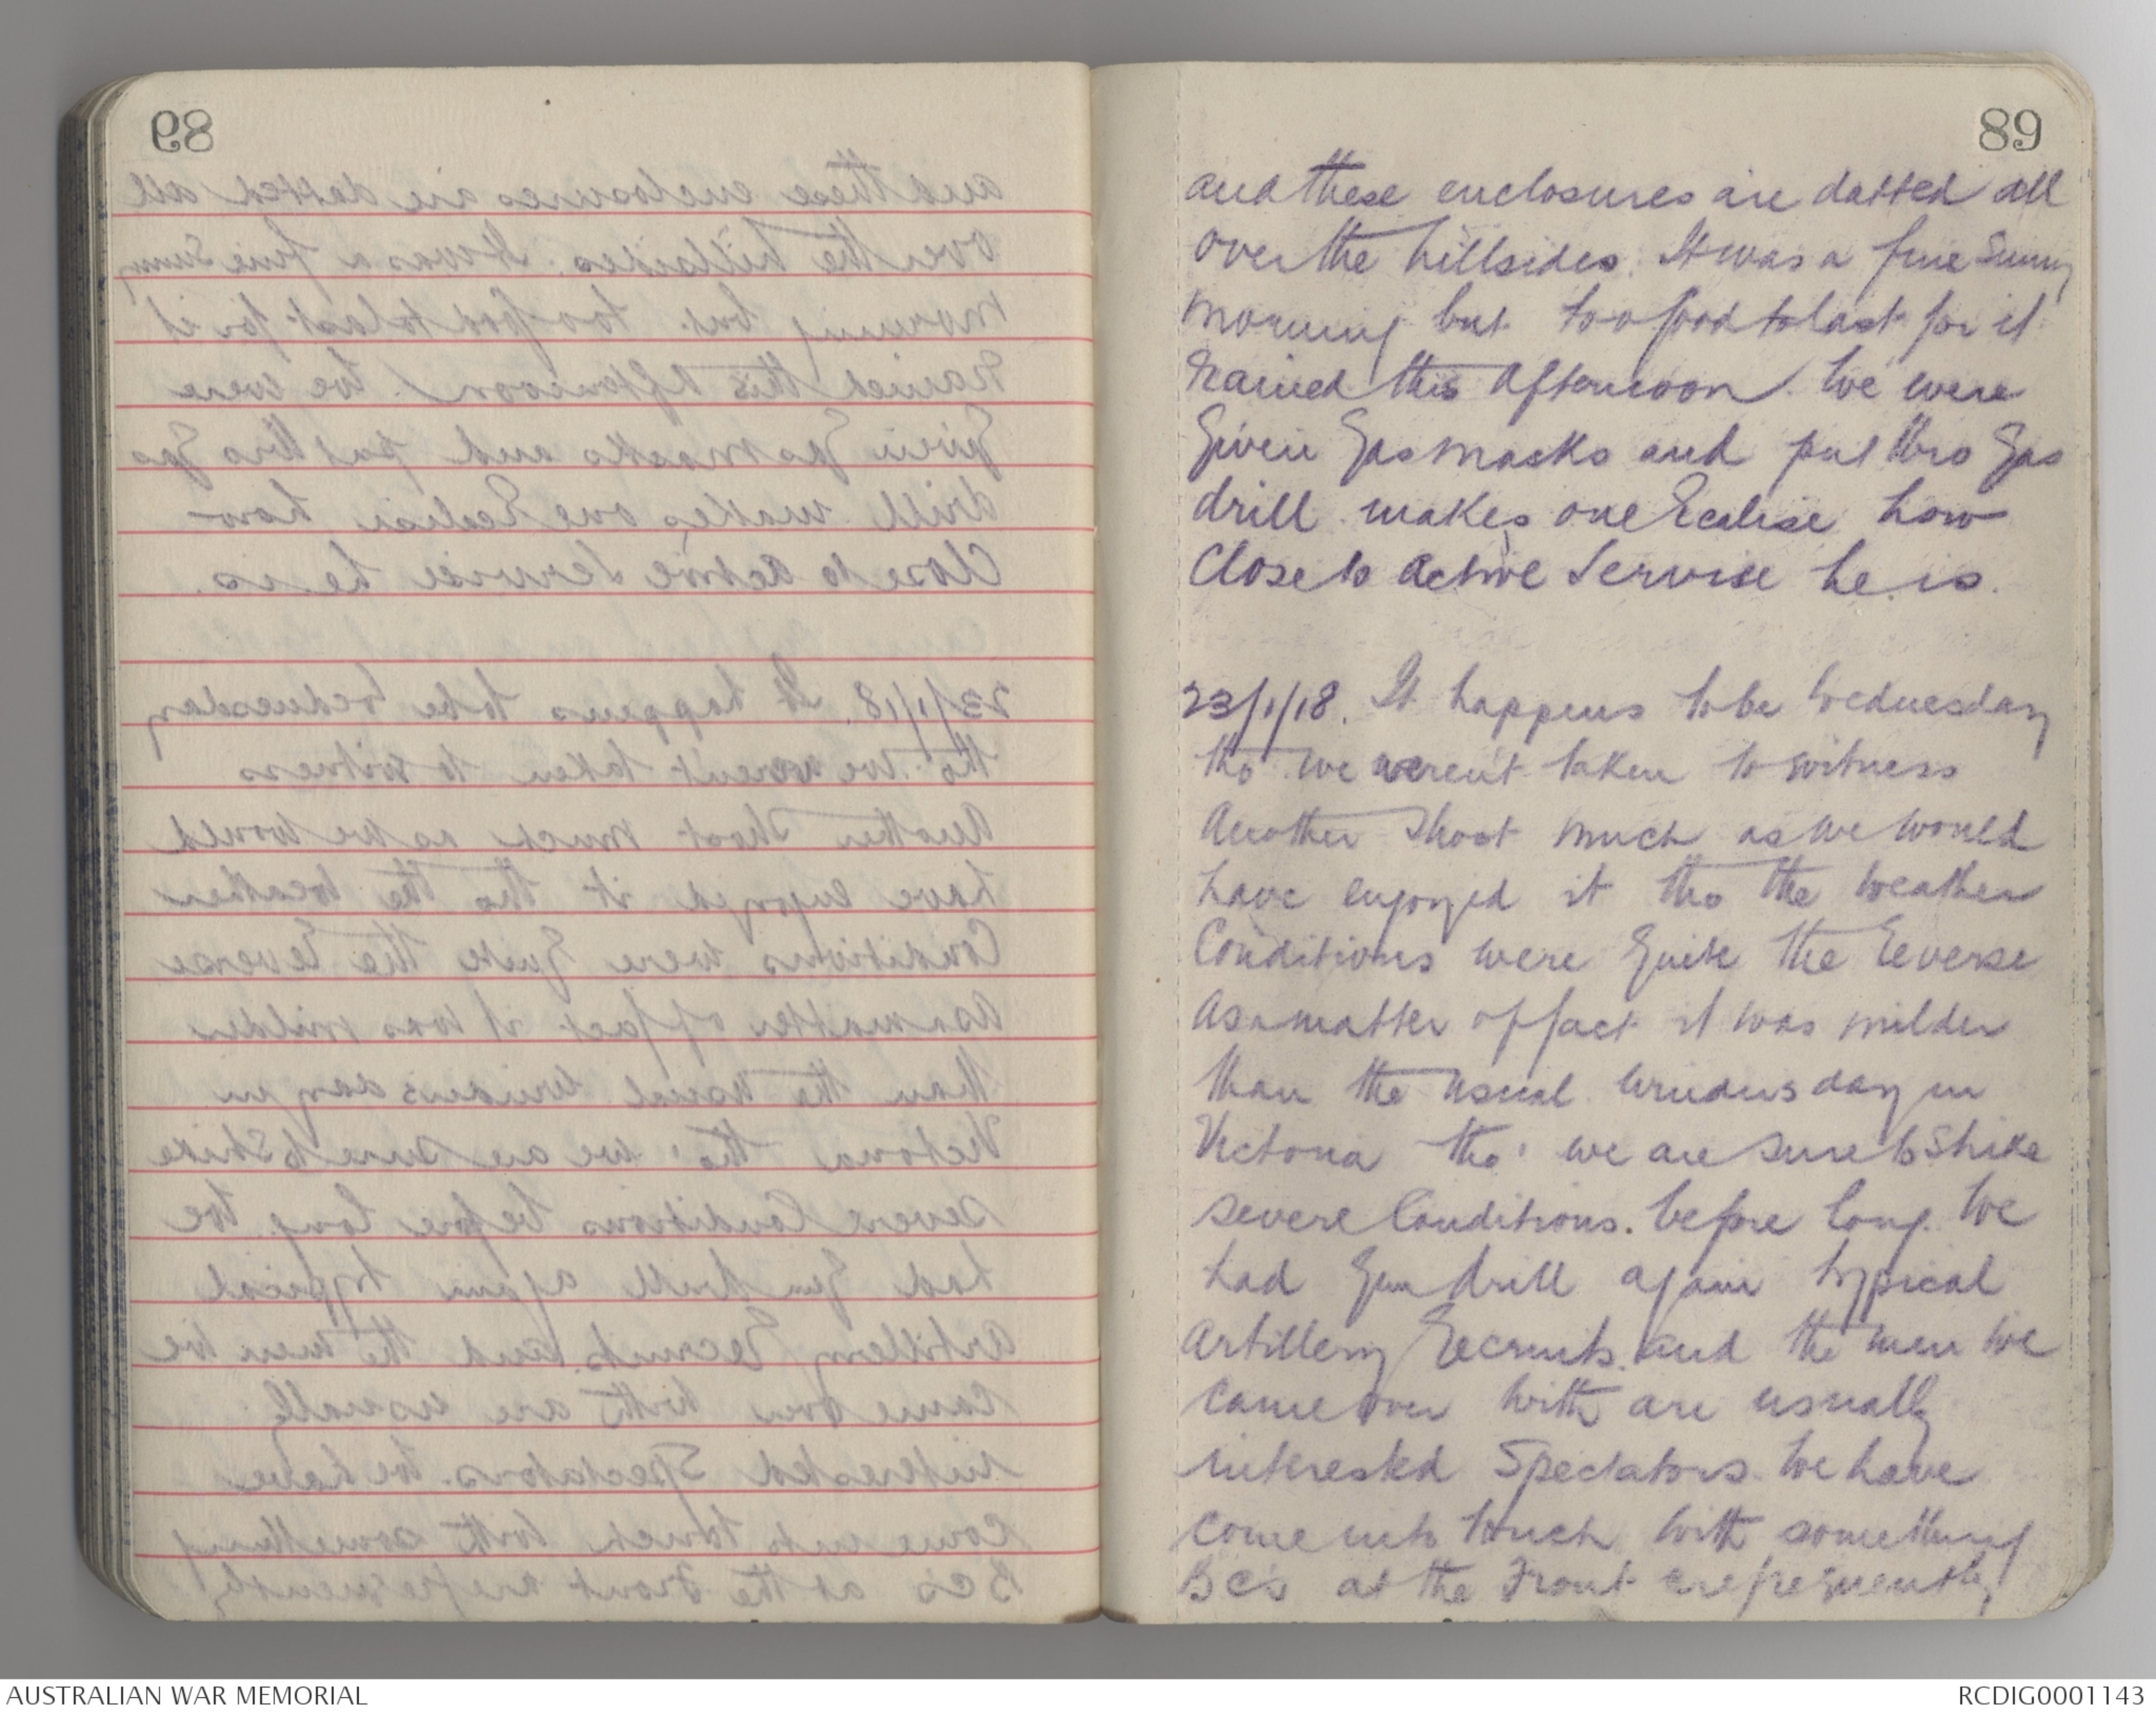 89
and these enclosures are dotted all
over the hillsides. It was a fine sunny
morning but too good to last for it
rained this afternoon. We were
given gas masks and put thro gas
drill makes one realise how
close to active service he is.
23/1/18. It happens to be Wednesday
tho we weren't taken to witness
another shoot much as we would
have enjoyed it tho the weather
conditions were quite the reverse
as a matter of fact it was milder
than the usual winters day in
Victoria tho' we are sure to strike
severe conditions. before long. We
had gun drill again typical
artillery recruits. and the men we
came over with are usually
interested spectators. We have
come into touch with something
B C's at the Front are frequently
AUSTRALIAN WAR MEMORIAL
RCDIG0001143